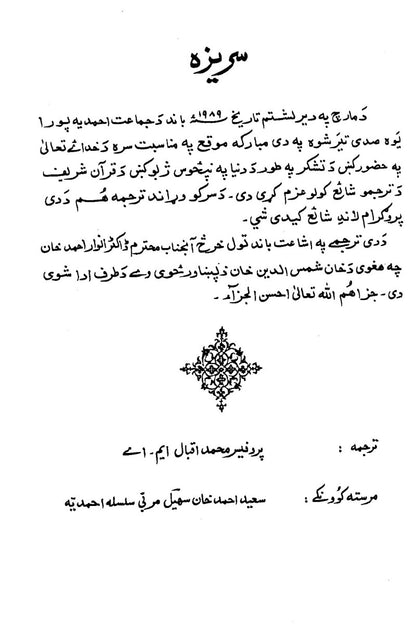 سریزه
دَ مارچ په دیرلشتم تاریخ ۱۹۸۹ء باند دَ جماعت احمدیه پورا
یوه صدی تیره شوه په دی مبارکه موقع په مناسبت سره دَ خدائے تعالیٰ
په حضور کښ دَ تشکر په طور دَ دنیا په پنځوس ژبو کښ دَ قرآن شریف
دَ ترجمو شائع کولو عزم کړی دی ـ دَ سرکو وړاند ترجمه هم دَ دی
پروگرام لاند شائع کیدی شي ـ
دَ دی ترجمے په اشاعت باند ټول خرڅ آنجناب محترم ډاکټر انوار احمد خان
چه هغوی دَ خان شمس الدین خان دَ پښاور ځوی وے دَ طرف ادا شوی
دی ـ جزاهم الله تعالیٰ احسن الجزآء ـ
ترجمه : پروفیسر محمد اقبال ایم ـ اے
مرسته کوونکے : سعید احمد خان سهیل مربی سلسله احمدیه